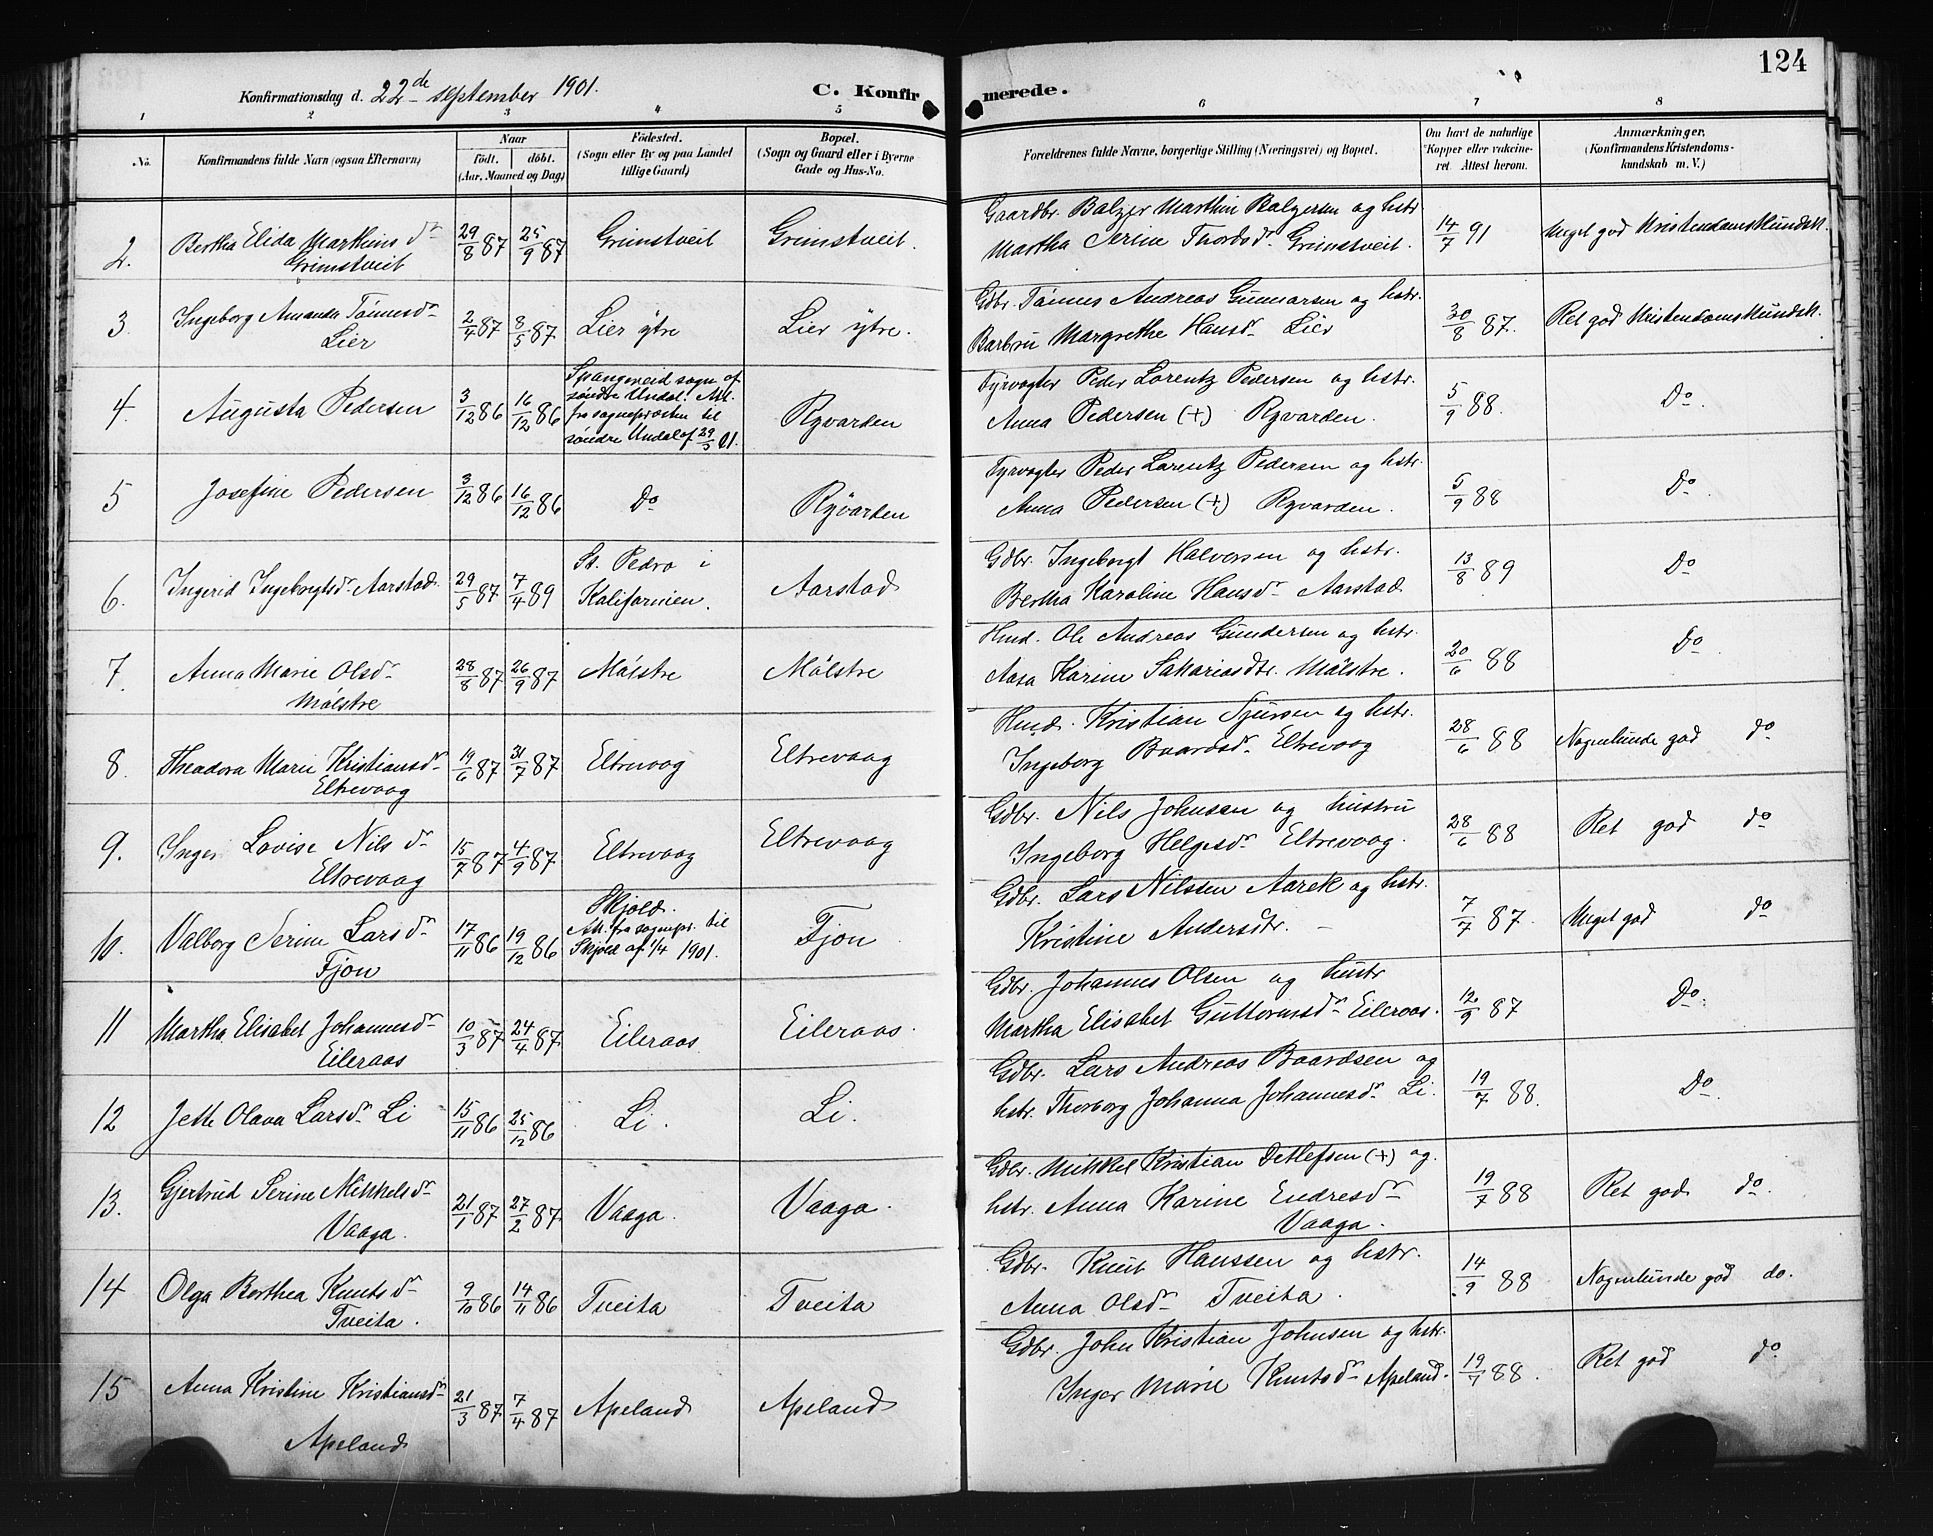 124
Konfirmationsdag d. 22de september 1901. C. Konfirmerede.
1 2 3 4 5 6 7 8
No. Konfirmandens fulde Navn (ogsaa Efternavn) Naar födt. döbt. (Aar, Maaned og Dag) Födested. (Sogn eller By og paa Landet tillige Gaard) Bopæl. (Sogn og Gaard eller i Byerne Gade og Hus-No. Forældrenes fulde Navne, borgerlige Stilling (Næringsvei) og Bopæl. Om havt de naturlige Kopper eller vaccineret. Attest herom. Anmærkninger. (Konfirmandens Kristendomskundskab m. V.)
2. Bertha Elida Marthins dr 29/8 87 25/9 87 Grimstveit Grimstveit. Gaardbr. Balzer Marthin Balzersen og hstr 14/7 91 Meget god Kristendomskundsk.
Grimstveit Martha Serine Thordsdr. Grimstveit.
3. Ingeborg Amanda Tönnesdr 2/4 87 8/5 87 Lier ytre Lier ytre. Gdbr. Tönnes Andreas Gunnarsen og hstr. 30/8 87. Ret god Kristendomskundsk.
Lier Barbru Margrethe Hansdr Lier
4. Augusta Pedersen 3/12 86 16/12 86 Spangereid sogn af Ryvarden Fyrvogter Peder Lorentz Pedersen og hstr. 5/9 88. Do.
söndre Undal. Att. Anna Pedersen (+) Ryvarden.
fra sogneprosten til
söndre Undal af 29/3 01.
5 Josefine Pedersen 3/12 86 16/12 86 Do Ryvarden Fyrvogter Peder Lorentz Pedersen og hstr. 5/9 88 Do.
Anna Pedersen (+) Ryvarden.
6. Ingerid Ingebregtsdr Aarstad. 29/5 87 7/4 89 St. Pedro i Aarstad Gdbr. Ingebregt Halvorsen og hstr. 13/8 89 Do
Kalifornien. Bertha Karoline Hansdr Aarstad
7. Anna Marie Olsdr 28/8 87 26/9 87 Mölstre Mölstre Hmd. Ole Andreas Gundersen og hstr. 20/6 88 Do
Mölstre Aasa Karine Sakariasdtr. Mölstre.
8. Theodora Marie Kristiansdr 19/6 87 31/7 87 Eltrevaag Eltrevaag Hmd. Kristian Sjursen og hstr. 28/6 88 Nogenlunde god do
Eltrevaag Ingeborg Baardsdr Eltrevaag
9. Inger Lovise Nils dr 15/7 87 4/9 87 Eltrevaag Eltrevaag Gdbr. Nils Johnsen og hustru 28/6 88 Ret god do
Eltrevaag Ingeborg Helgesdr Eltrevaag.
10. Valborg Serine Lars dr 17/11 86 19/12 86 Skjold. Fjon Gdbr. Lars Nilssen Aarek og hstr. 7/7 87. Meget god do
Fjon Att. fra sognepr. til Kristine Andersdtr. –
Skjold af 1/4 1901.
11 Martha Elisabet Johannesdr 10/3 87 24/4 87 Eileraas Eileraas. Gdbr. Johannes Olsen og hustr 12/9 87 Do.
Eileraas Martha Elisabet Guttormsdr Eileraas.
12 Jette Olava Larsdr Li 15/11 86 25/12 86 Li. Li. Gdbr. Lars Andreas Baardsen og 19/7 88. Do.
hstr. Thorborg Johanna Johannesdr Li.
13. Gjertrud Serine Mikkelsdr 21/1 87 27/2 87 Vaaga. Vaaga. Gdbr. Mikkel Kristian Detlefsen (+) og. 19/7 88 Ret god do.
Vaaga. hstr. Anna Karine Endresdr
Vaaga.
14 Olga Berthea Knuts dr 9/10 86 14/11 86 Tveita Tveita Gdbr. Knut Hanssen og hstr. 14/9 88 Nogenlunde god do.
Tveita. Anna Olsdr Tveita.
15 Anna Kristine Kristiansdr 21/3 87 7/4 87 Apeland Apeland Gdbr. John Kristian Johnsen og hstr. 19/7 88. Ret god do
Apeland Inger Marie Knutsdr Apeland.